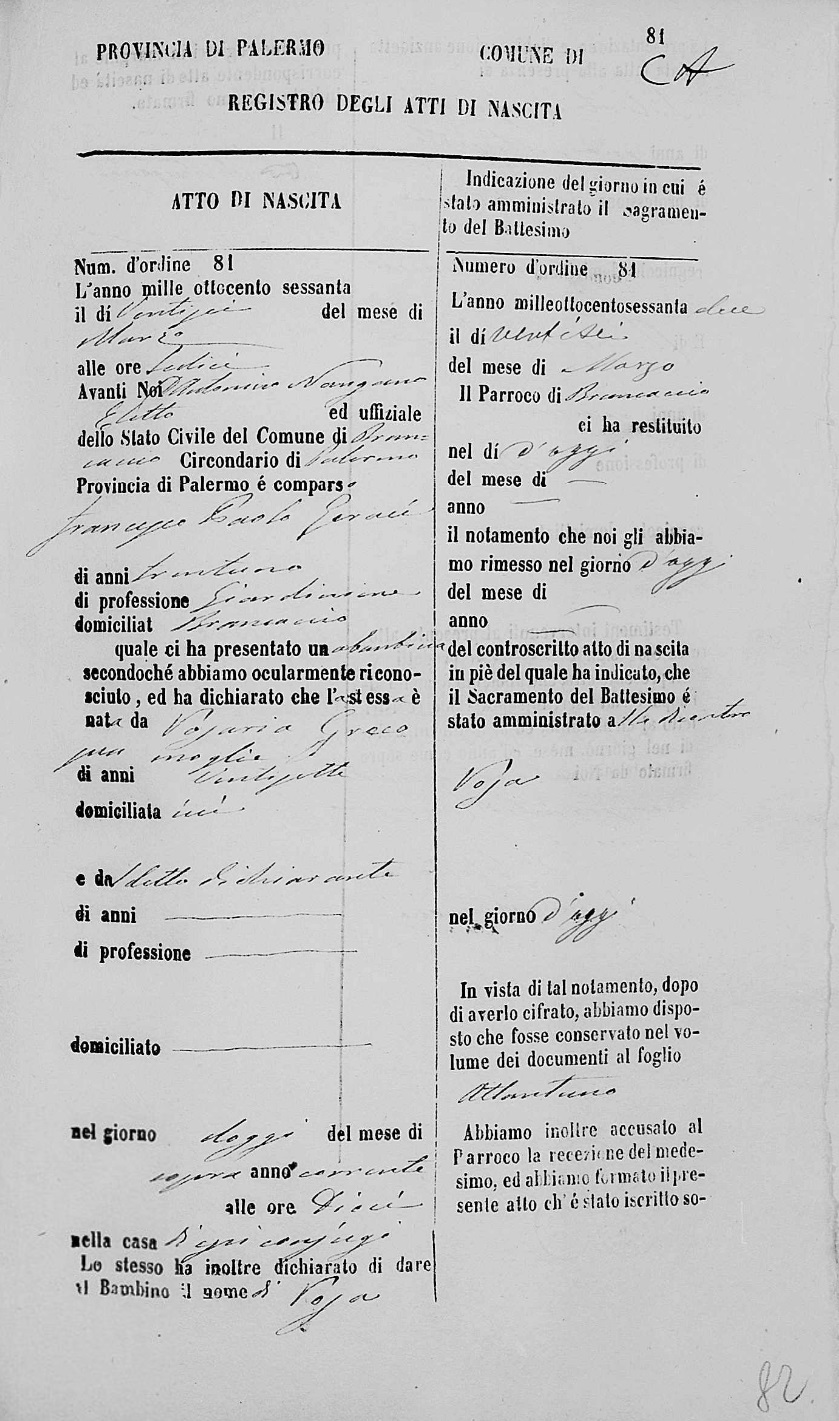 81
PROVINCIA DI PALERMO
COMUNE DI
CA
REGISTRO DEGLI ATTI DI NASCITA
ATTO DI NASCITA
Num. d'ordine 81
L'anno mille ottocento sessanta
il dí Ventisei del mese di
Marzo
alle ore Sedici
Avanti Noi D. Antonino Mangano
Eletto ed uffiziale
dello Stato Civile del Comune di Bran=
caccio Circondario di Palermo
Provincia di Palermo é comparso
Francesco Paolo Geraci
di anni trentuno
di professione Giardiniere
domiciliat Brancaccio
quale ci ha presentato una bambina
secondoché abbiamo ocularmente ricono-
sciuto, ed ha dichiarato che l'a stessa è
nata da Rosaria Greco
sua moglie
di anni Ventisette
domiciliata ivi
e da detto dichiarante
di anni
di professione
domiciliato
nel giorno d'oggi del mese di
sopra anno corrente
alle ore Dieci
nella casa di essi conjugi
Lo stesso ha inoltre dichiarato di dare
al Bambino il nome di Rosa
Indicazione del giorno in cui é
stato amministrato il sagramen-
to del Battesimo
Numero d'ordine 81
L'anno milleottocentosessanta due
il dí ventisei
del mese di Marzo
Il Parroco di Brancaccio
ci ha restituito
nel dí d'oggi
del mese di
anno
il notamento che noi gli abbia-
mo rimesso nel giorno d'oggi
del mese di
anno
del controscritto atto di nascita
in piè del quale ha indicato, che
il Sacramento del Battesimo é
stato amministrato alla
Rosa
nel giorno d'oggi
In vista di tal notamento, dopo
di averlo cifrato, abbiamo dispo-
sto che fosse conservato nel vo-
lume dei documenti al foglio
Ottantuno
Abbiamo inoltre accusato al
Parroco la recezione del mede-
simo, ed abbiamo formato il pre-
sente atto ch' é stato iscritto so-
82